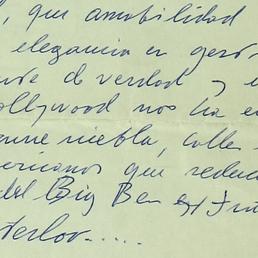 , que amabilidad
elegancia en gest
de verdad y
ollywood nos ha e
enne niebla, calle
ericanos que reduc
del Big Ben